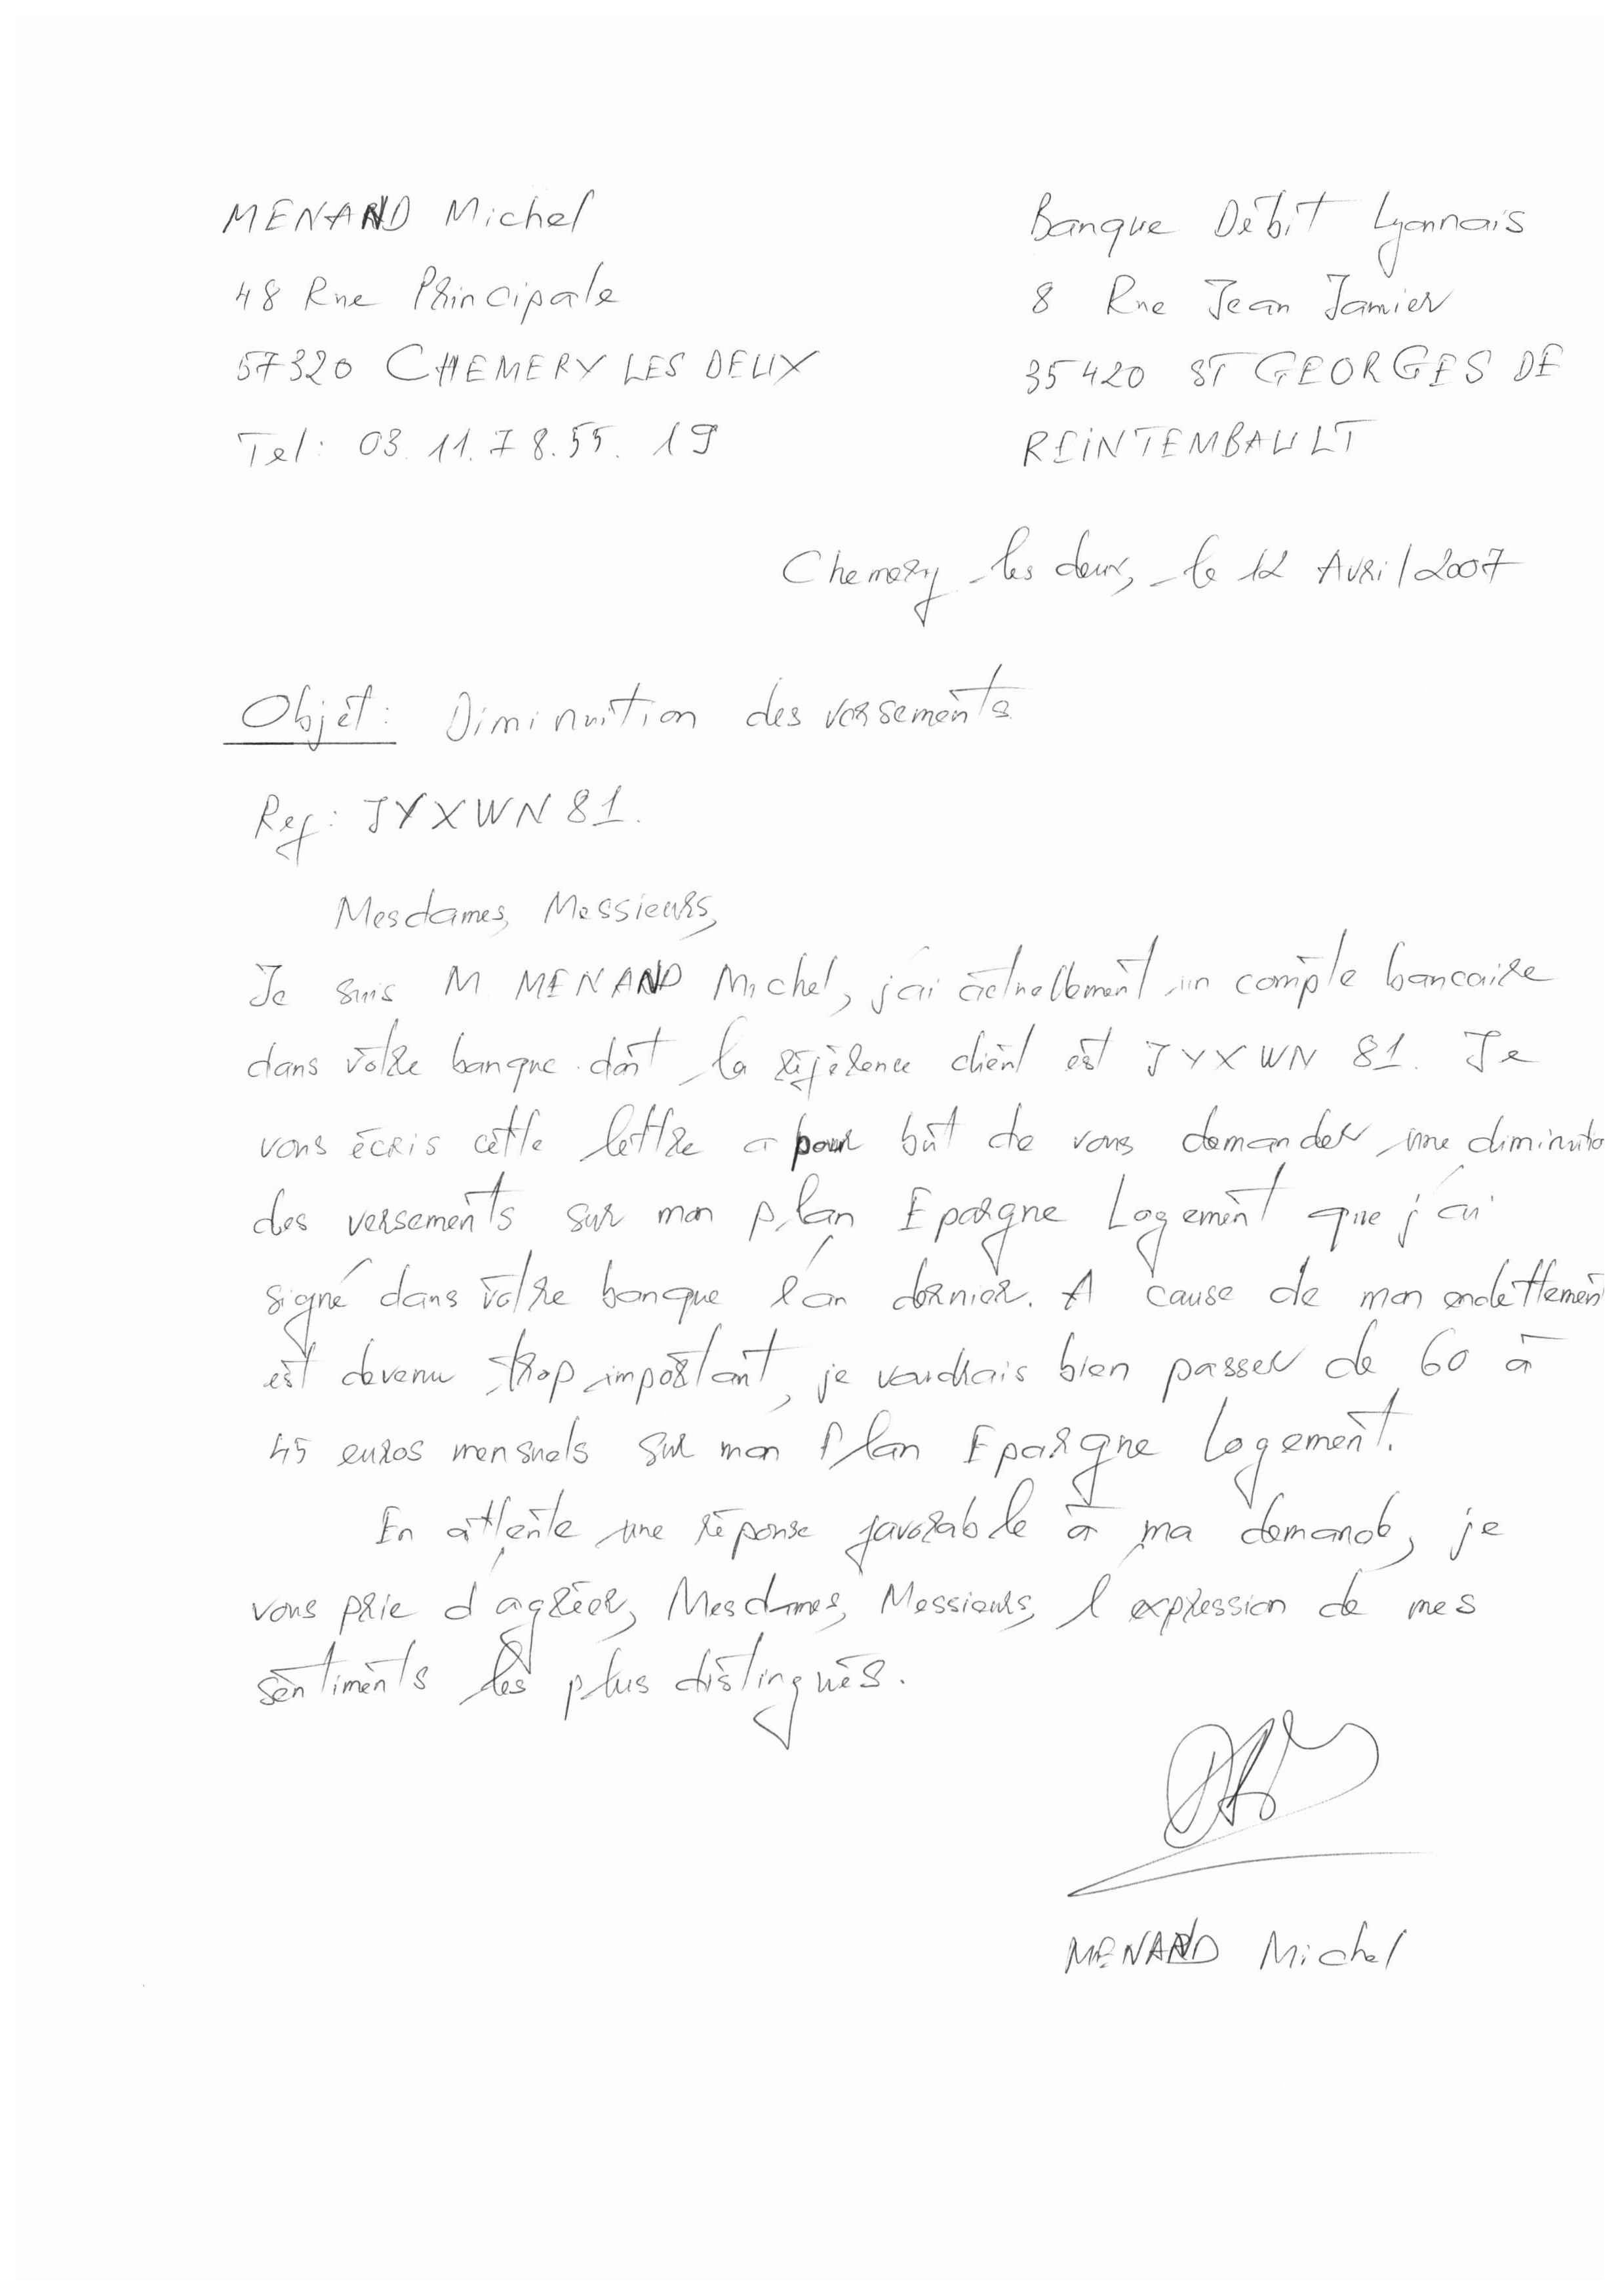 MENAND Michel
48 Rue Principale
57320 CHEMERY LES DEUX
Tel: 03.11.78.55.19
Banque Débit Lyonnais
8 Rue Jean Jamier
35420 ST GEORGES DE
REINTEMBAULT
Chemery les deux, le 12 Avril 2007
Objet: Diminuition des versements
Ref: JYXWN81.
Mesdames, Messieurs,
Je suis M MENAND Michel, j'ai actuellement un compte bancaire
dans votre banque dont la référence client est JYXWN 81. Je
vous écris cette lettre a pour but de vous demander une diminutio
des versements sur mon plan Epargne Logement que j'ai
signé dans votre banque l'an dernier. A cause de mon endettement
est devenu trop important, je voudrais bien passer de 60 à
45 euros mensuels sur mon Plan Epargne Logement.
En attente une réponse favorable à ma demande, je
vous prie d'agréer, Mesdames, Messieurs, l'expression de mes
sentiments les plus distingués.
MENAND Michel